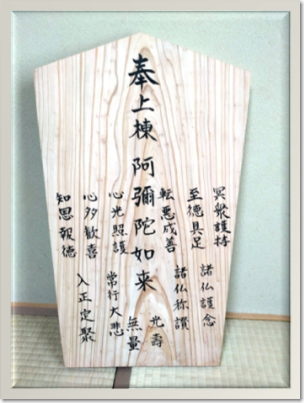 奉上棟 阿彌陀如来
冥衆護持
至德具足
轉悪成善
諸仏護念
諸仏称讃
心光照護
心多歓喜
知恩報德
常行大悲
入正定聚
光壽
無量